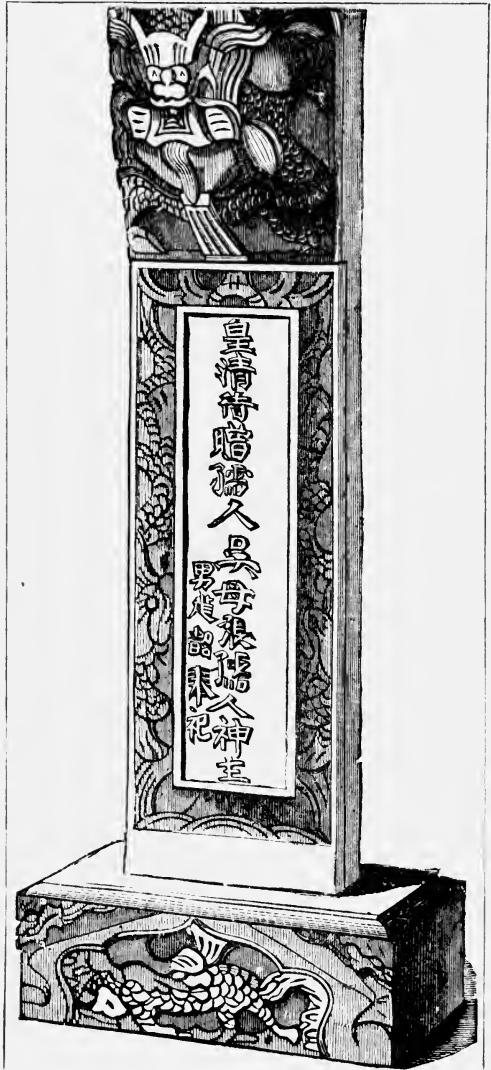 皇清待贈孺人吳母張孺人神主
男 韶奉祀